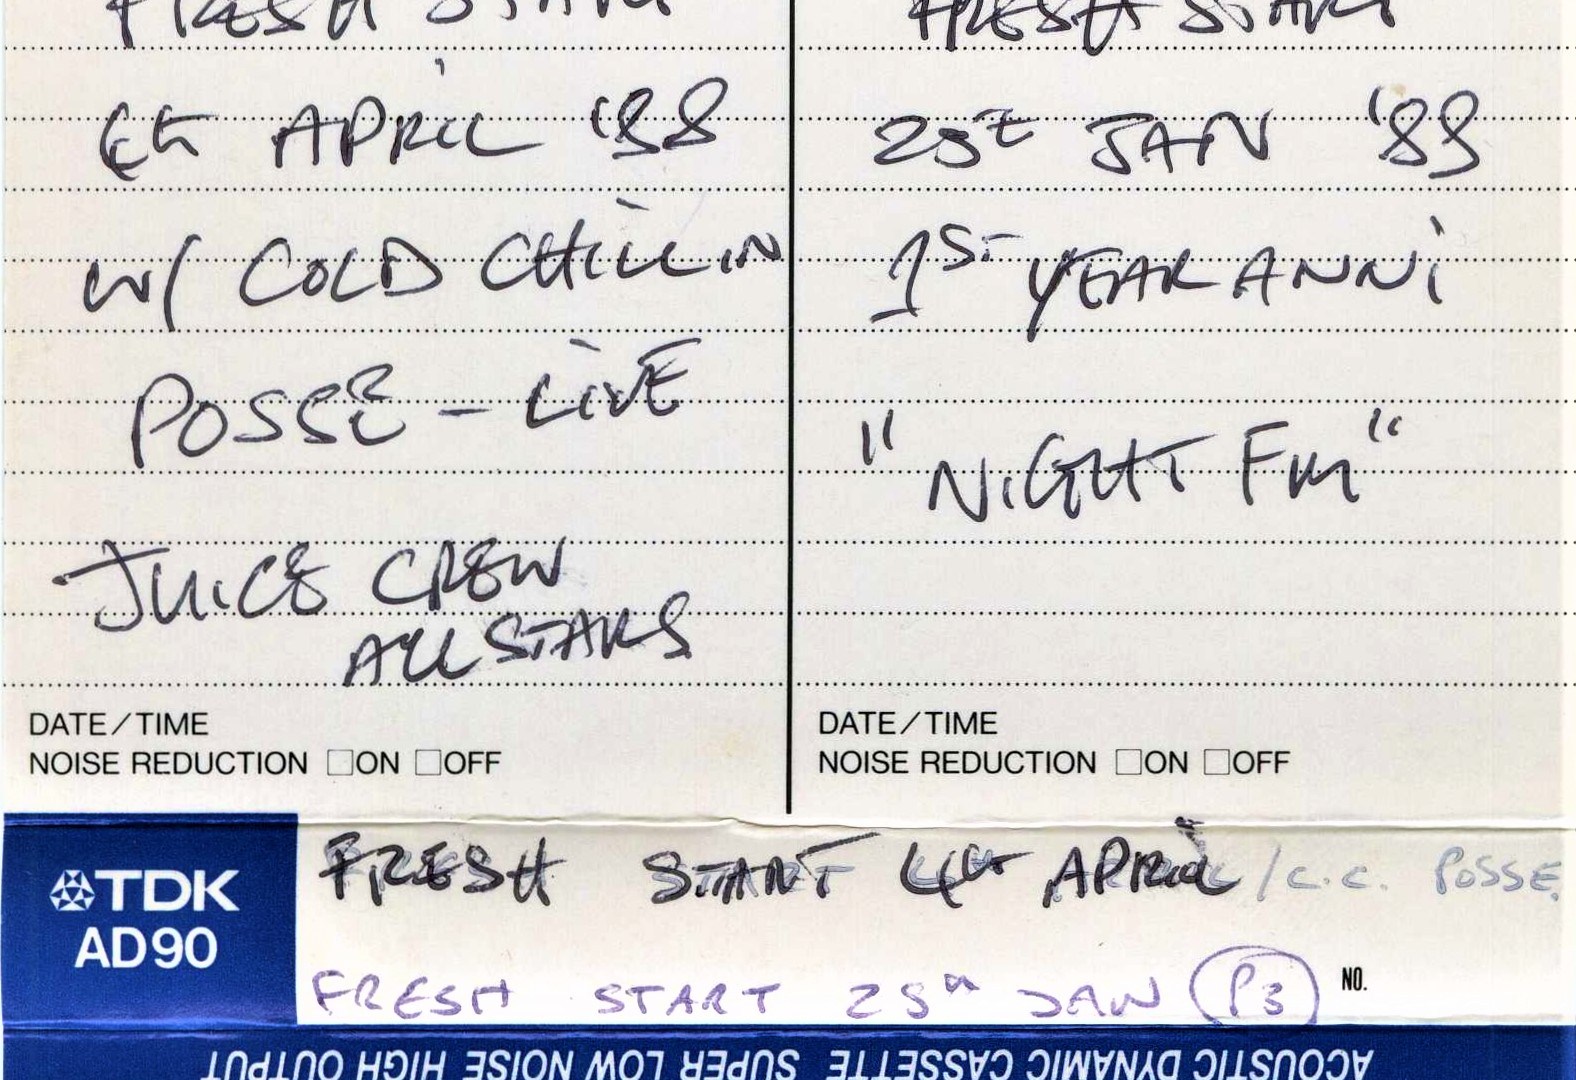 FRESH START
4th APRIL '88
W/ COLD CHILLIN
POSSE – LIVE
JUICE CREW
ALL STARS
DATE/TIME
NOISE REDUCTION □ON □OFF
FRESH START
25th JAN '88
1ST YEAR ANNI
"NIGHT FM"
DATE/TIME
NOISE REDUCTION □ON □OFF
TDK
AD90
FRESH START 4th APRIL / C.C. POSSE
FRESH START 25th JAN P3
NO.
ACOUSTIC DYNAMIC CASSETTE SUPER LOW NOISE HIGH OUTPUT